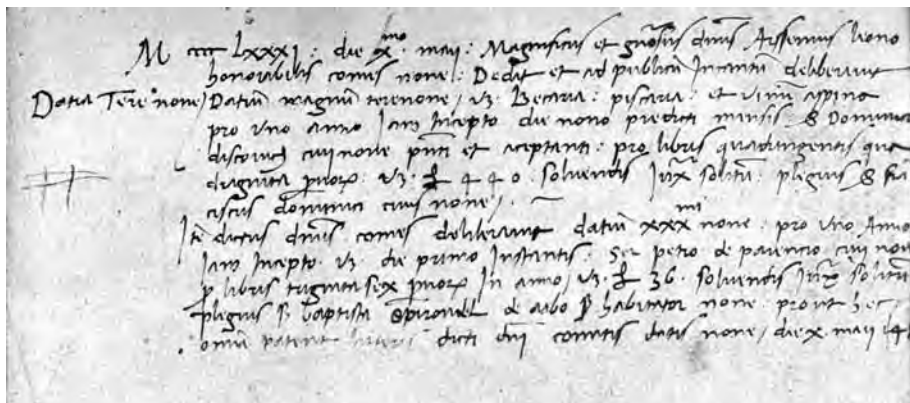 M cccc Lxxxj : die x.mo maij : Magnificus et gnosus dnus Arsenius
honorabilis comes none : Dedit et ad publicu Incantu deliberavit
Datia Tere none / Datiu magnu tere none / vz. Becaria : piscaria : et vinu a spina
pro vno anno Iam Incepto die nono predicti mensis : S Dominico
cui none pnti et aceptanti : pro libris quadringentis qua
draginta : vz. £ 440 . solvendis Iux solitu : plegius S fra
ciscus dominici civis none / .
Ite dictus dnus comes deliberavit datiu xxx.mi none : pro vno Anno
Iam Incepto vz. die primo Instantis : Ser petro de civi none
p libris trigintasex In anno / vz. £ 36 . solvendis Iux solitu
plegius S baptista de habitator none : prout hec
omia patent dicti dni comitis datis none / die x maij 14